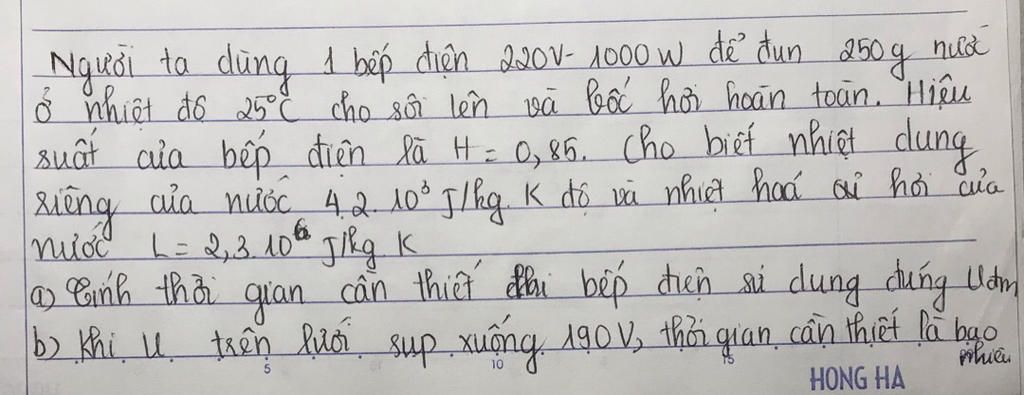 Người ta dùng 1 bếp điện 220V-1000W để đun 250g nước
ở nhiệt độ 25°C cho sôi lên và bốc hơi hoàn toàn. Hiệu
suất của bếp điện là H = 0,85. Cho biết nhiệt dung
riêng của nước 4.2.10³ J/kg.K độ và nhiệt hoá hơi của
nước L = 2,3.10⁶ J/kg K
a) Tính thời gian cần thiết khi bếp điện sử dụng đúng Uđm
b) Khi U trên lưới sụp xuống 190V, thời gian cần thiết là bao
nhiêu
5 10 15
HONG HA